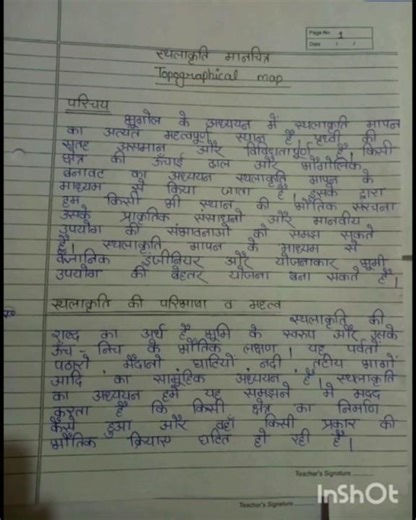 Page No. 1
Date / /
स्थलाकृति मानचित्र
Topographical map
परिचय
भूगोल के अध्ययन में स्थलाकृति मापन
का अत्यंत महत्वपूर्ण स्थान है। पृथ्वी की
सतह असमान और विविधतापूर्ण है, किसी
क्षेत्र की ऊंचाई ढाल और भौगोलिक
बनावट का अध्ययन स्थलाकृति मापन के
माध्यम से किया जाता है। इसके द्वारा
हम किसी भी स्थान की भौतिक संरचना
उसके प्राकृतिक संसाधनों और मानवीय
उपयोग की संभावनाओं को समझ सकते
है। स्थलाकृति मापन के माध्यम से
वैज्ञानिक इंजीनियर और योजनाकार भूमी
उपयोग की बेहतर योजना बना सकते है।
स्थलाकृति की परिभाषा व महत्व
स्थलाकृति की
शब्द का अर्थ है भूमि के स्वरूप और उसके
ऊँच - निच के भौतिक लक्षण। यह पर्वतों
पठारो मैदानो घाटियों नदी, तटीय भागों
आदि का सामूहिक अध्ययन है। स्थलाकृति
का अध्ययन हमे यह समझने मे मदद
करता है कि किसी क्षेत्र का निर्माण
कैसे हुआ और वहाँ किसी प्रकार की
भौतिक क्रियाए घटित हो रही है।
Teacher's Signature
Teacher's Signature
InShOt